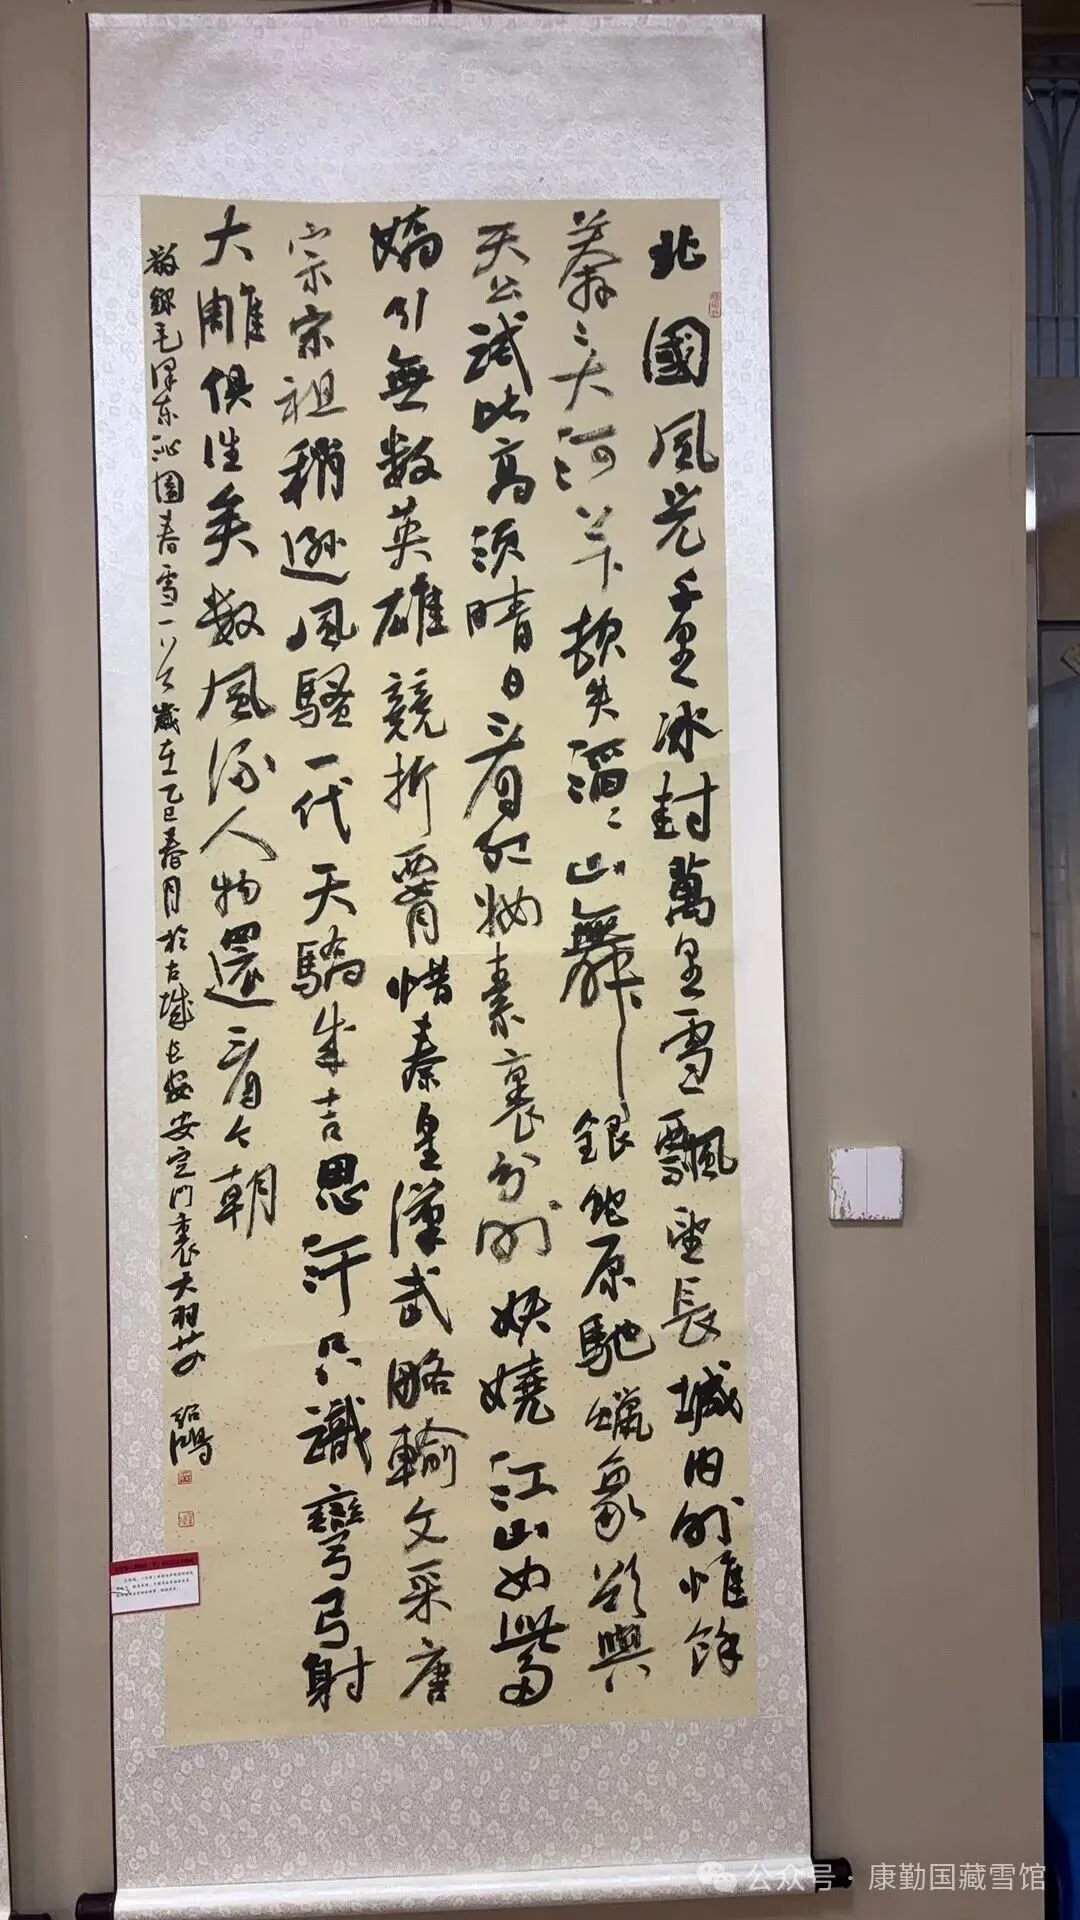 北國風光千里冰封萬里雪飄望長城内外惟餘
莽々大河上下頓失滔々山舞銀蛇原馳蠟象欲與
天公試比高須晴日看紅妝素裹分外妖嬈江山如此多
嬌引無數英雄競折腰惜秦皇漢武略輸文采唐
宗宋祖稍遜風騷一代天驕成吉思汗只識彎弓射
大雕俱往矣數風流人物還看今朝
敬錄毛澤东沁園春雪一首歲在乙巳春月於古城長安安定門裏大羽堂 紹鴻
公众号·康勤国藏雪馆